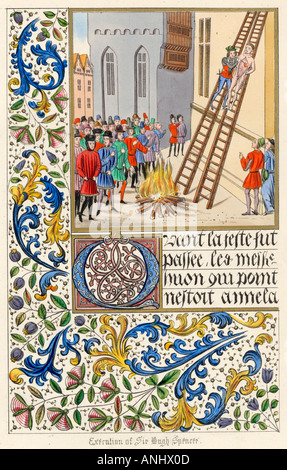 Quant la feste fut
passee, les messe
nuon qui point
nestoit amiela
Execution of Sir Hugh Spencer.
alamy
ANHX0D